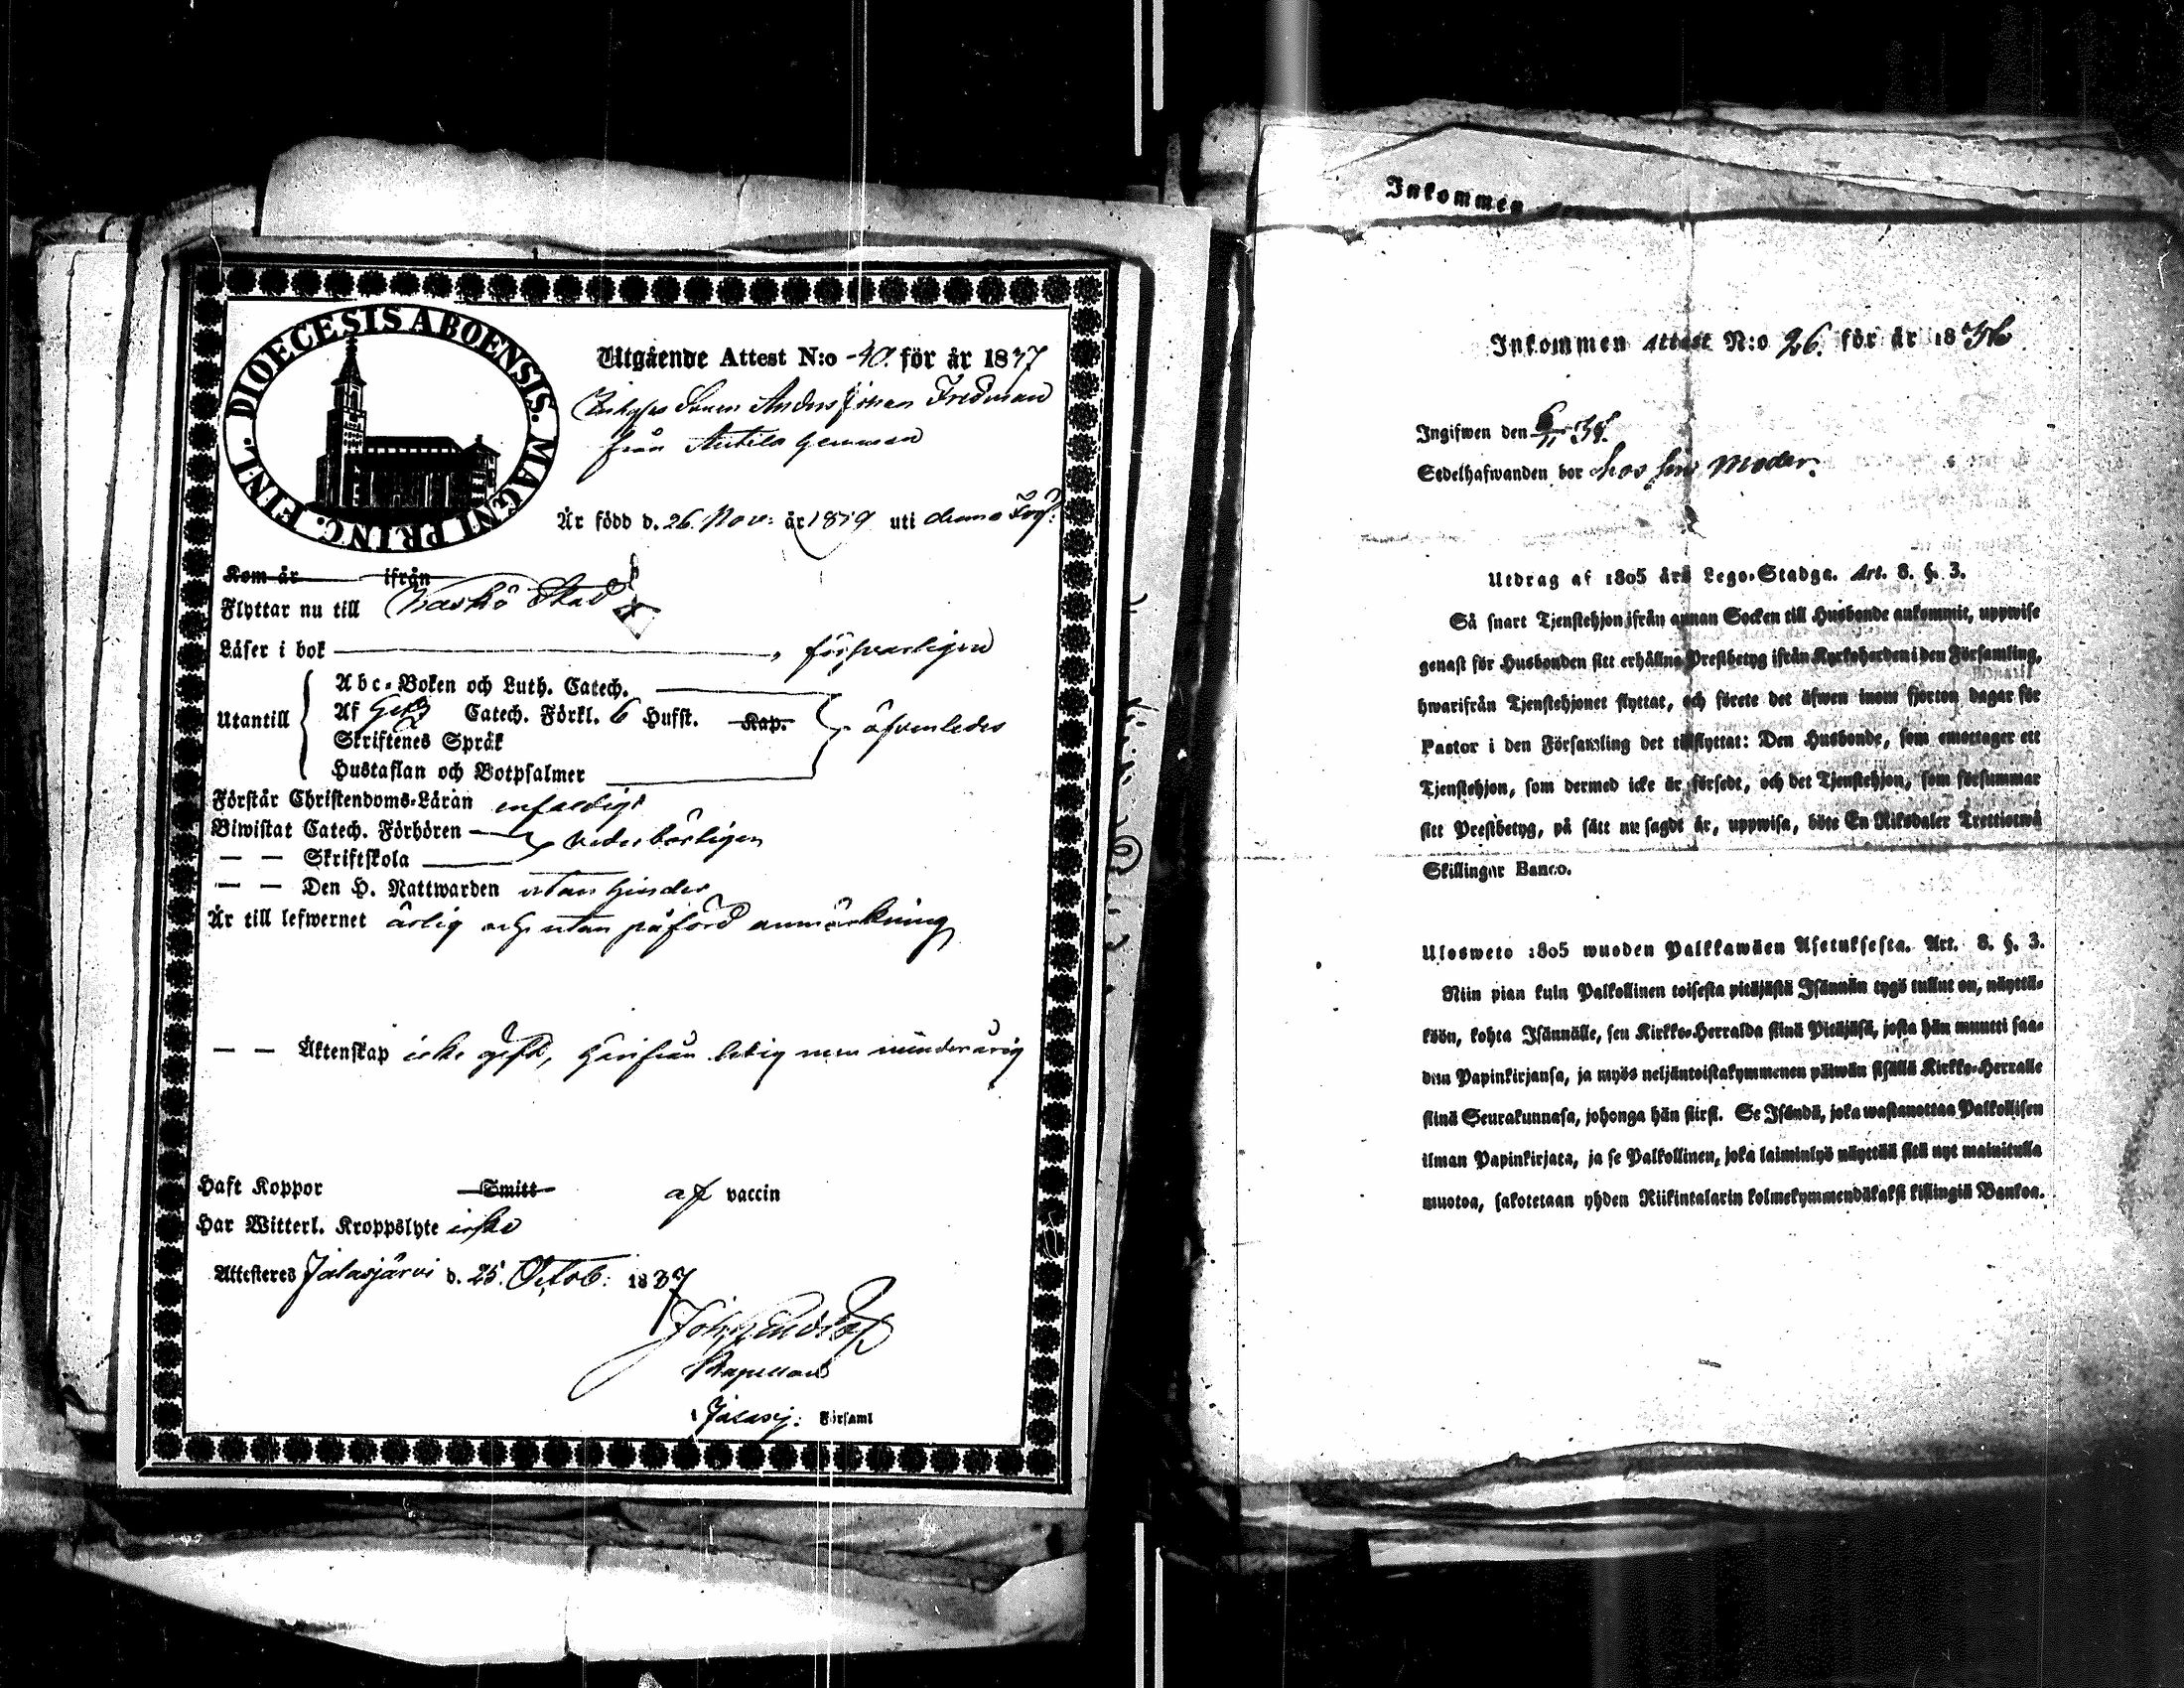 DIOECESIS ABOENSIS. MAGNI PRINC. FINL.
Utgående Attest N:o 40. för år 1837
Anders Johan Fredman
från Antila hemman
Är född d. 26. Nov: år 1819 uti denna Förs:
Kom år ifrån
Flyttar nu till Kaskö Stad
Läser i bok försvarligen
Abc-Boken och Luth. Catech.
Utantill Af Catech. Förkl. 6 Hufst. Kap. äfvenledes
Skriftenes Språk
Hustaflan och Botpsalmer
Förstår Christendoms-Läran enfaldigt
Biwistat Catech. Förhören vederbörligen
— — Skriftskola
— — Den H. Nattwarden utan hinder
Är till lefwernet ärlig och utan påförd anmärkning
— — Äktenskap icke gift, härifrån ledig men minderårig
Haft Koppor Smitt af vaccin
Har Witterl. Kroppslyte icke
Attesteras Jalasjärvi d. 25. Octob: 1837
Kapellan
i Jalasj: Församl
Inkommen
Inkommen Attest N:o 26. för år 18
Ingifwen den 6/11
Sedelhafwanden bor hos sin Moder.
Utdrag af 1805 års Lego-Stadga. Art. 8. §. 3.
Så snart Tjenstehjon ifrån annan Socken till Husbonde ankommit, uppwise
genast för Husbonden sitt erhållna Prestbetyg ifrån Kyrkoherden i den Församling,
hwarifrån Tjenstehjonet flyttat, och förete det äfwen inom fjorton dagar för
Pastor i den Församling det tillflyttat: Den Husbonde, som emottager ett
Tjenstehjon, som dermed icke är försedt, och det Tjenstehjon, som försummar
sitt Prestbetyg, på sätt nu sagdt är, uppwisa, böte En Riksdaler Trettiotwå
Skillingar Banco.
Ulosweto 1805 wuoden Palkkawäen Asetuksesta. Art. 8. §. 3.
Niin pian kuin Palkollinen toisesta pitäjästä Isännän tygö tullut on, näyttä-
köön, kohta Isännälle, sen Kirkko-Herralda siinä Pitäjäsä, josta hän muutti saa-
dun Papinkirjansa, ja myös neljäntoistakymmenen päiwän sisällä Kirkko-Herralle
siinä Seurakunnasa, johonga hän siirsi. Se Isändä, joka wastanottaa Palkollisen
ilman Papinkirjata, ja se Palkollinen, joka laiminlyö näyttää sitä nyt mainitulla
muotoa, sakotetaan yhden Riikintalarin kolmekymmendäkaksi killingiä Bankoa.